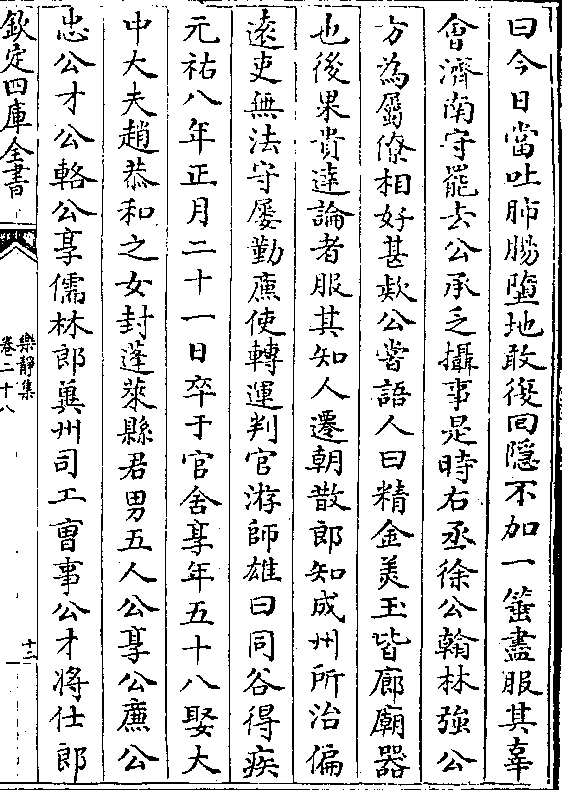 曰今日當吐肺腸墮地敢復回隱不加一箠盡服其辜
會濟南守罷去公承乏攝事是時右丞徐公翰林強公
方為屬僚相好甚歡公嘗語人曰精金美玉皆廊廟器
也後果貴達論者服其知人遷朝散郎知成州所治偏
遠吏無法守屡勤廉使轉運判官游師雄曰同谷得疾
元祐八年正月二十一日卒于官舍享年五十八娶大
中大夫趙恭和之女封蓬萊縣君男五人公享公廉公
忠公才公輅公享儒林郎冀州司工曹事公才將仕郎
欽定四庫全書
樂靜集
卷二十八
十二